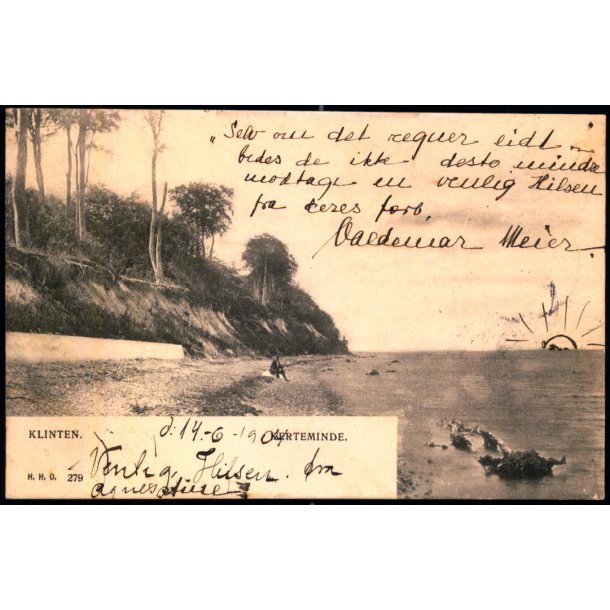 „Selv om det regner eidt
bedes de ikke desto mindre
modtage en venlig Hilsen
fra deres forb,
Valdemar Meier.
KLINTEN. d. 14-6-1904 KERTEMINDE.
Venlig Hilsen. fra
H. H. O. 279
agnes